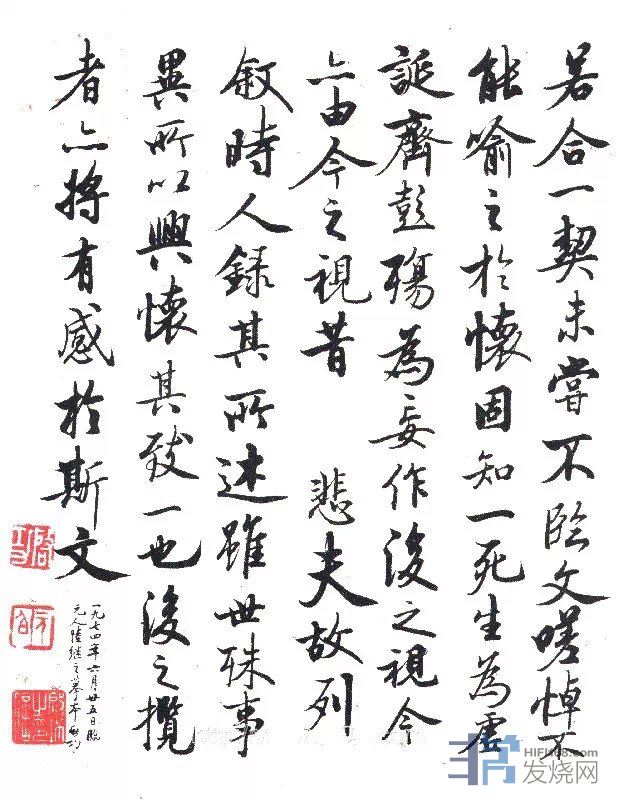 若合一契未嘗不臨文嗟悼不
能喻之於懷固知一死生為虛
誕齊彭殤為妄作後之視今
亦由今之視昔 悲夫故列
敘時人錄其所述雖世殊事
異所以興懷其致一也後之攬
者亦將有感於斯文
一九七四年六月廿五日臨
元人陸繼之摹本啟功
HIFI168.com
发烧网